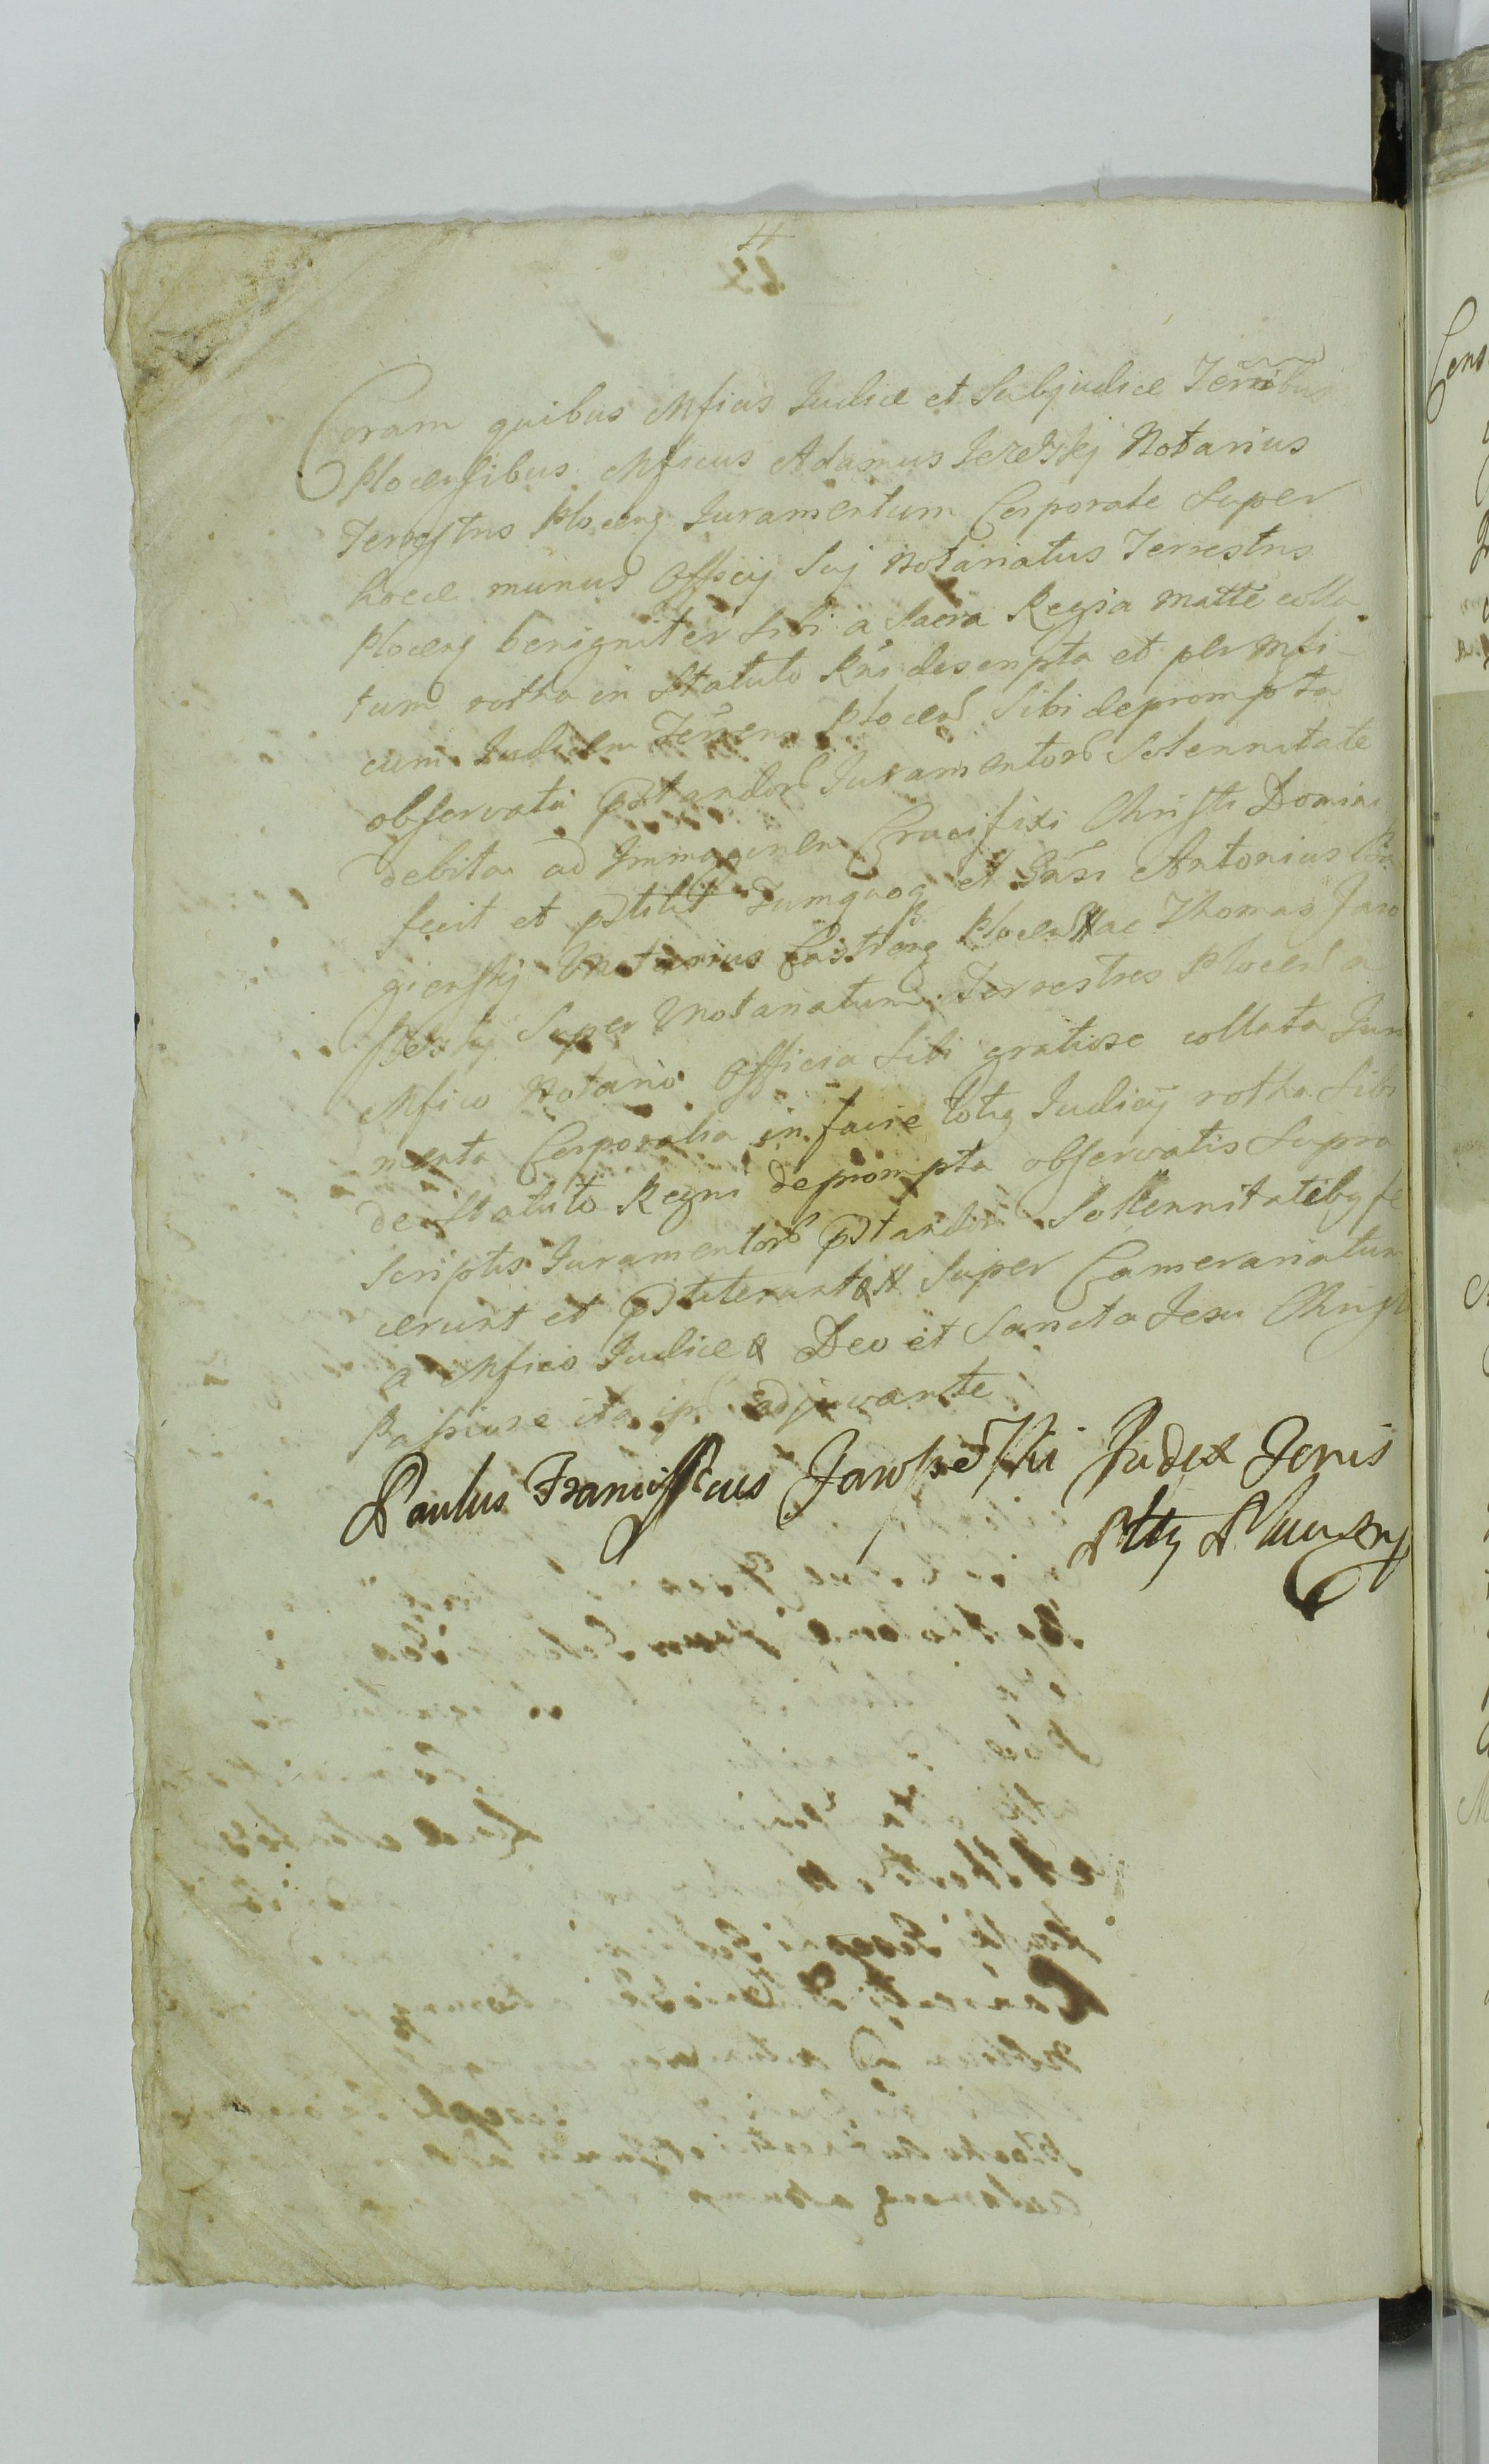 Coram quibus Mficis Judice et Subjudice Terribus
Plocensibus Mficus Adamus Jezeskj Notarius
Terrestris Plocens Juramentum Corporale Super
hocce munus Officij Suj Notariatus Terrestris
Plocens benigniter Sibi a Sacra Regia Matte colla
tum rotha in Statuto Rni descripta et per Mfi-
cum Judicem Terrens Plocens Sibi deprompta
observata pstandor Juramentor Solennitate
debita ad Immaginen Crucifixi Christi Domini
fecit et pstitit Tumquoq et Gnsi Antonius
gienskj Notarius Castrens Plocens ac Thomas Jaro
Super Notariatum Terrestres Plocens a
Mfico Notario Officia Sibi gratiose collata Jura
menta Corporalia in facie totiq Judicij rotha Sibi
de Statuto Regni deprompta observatis Supra
Scriptis Juramentor pstandor Solennitatibq fe
cerunt et pstiterunt & Super Camerariatum
a Mfico Judice & Deo et Sancta Jesu Christi
Passione ita ips adjuvante
Paulus Franciscus Judex Terris